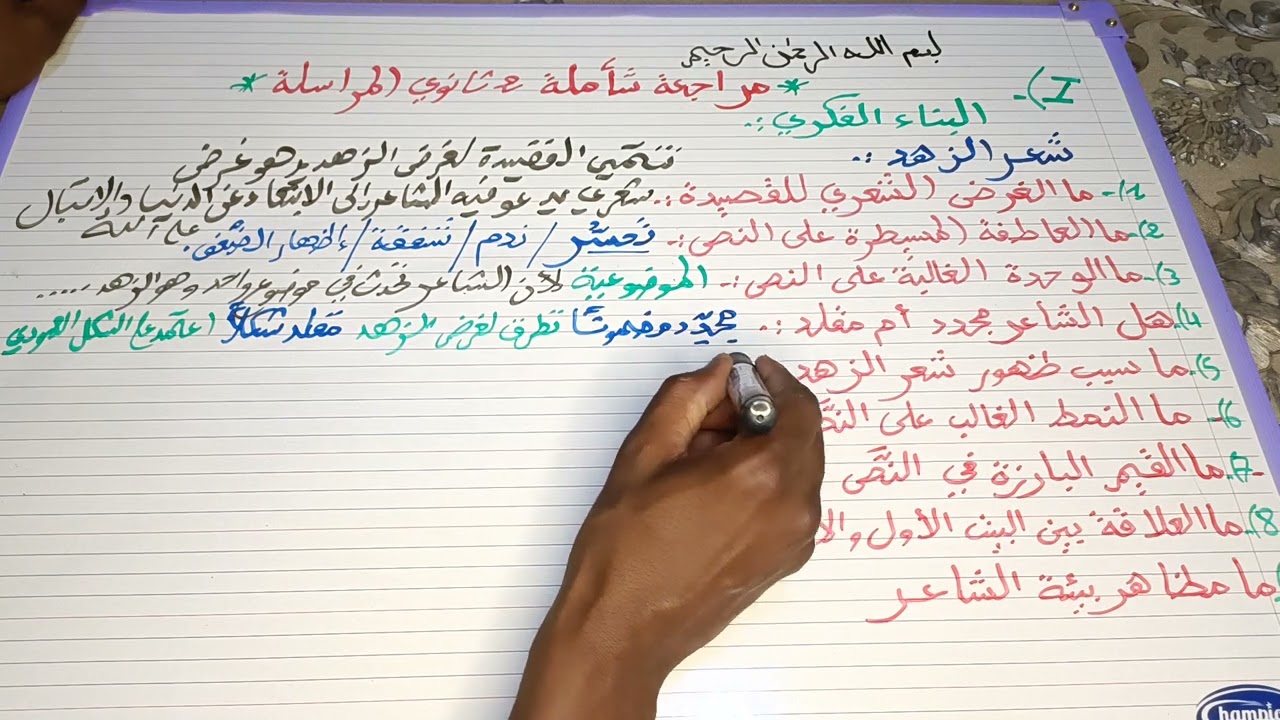 بسم الله الرحمن الرحيم
* مراجعة شأملة 2 ثانوي المراسلة *
I)- البناء الفكري :.
شعر الزهد :.
تنتمي القصيدة لغرض الزهد وهو غرض
1)- ما الغرض الشعري للقصيدة :. شعري يدعو فيه الشاعر إلى الابتعاد عن الدنيا والاقبال
على الله
2)- ما العاطفة المسيطرة على النص :. تحسر / ندم / شفقة / إظهار الضعف.
3)- ما الوحدة الغالبة على النص :. الموضوعية لأن الشاعر تحدث في موضوع واحد وهو الزهد .....
4). هل الشاعر مجدد أم مقلد :. مجدد مضمونا تطرق لغرض الزهد مقلد شكلاً (اعتمد على الشكل العمودي
5). ما سبب ظهور شعر الزهد
6)- ما النمط الغالب على
7)- ما القيم البارزة في النَّص
8)- ما العلاقة بين البيت الأول
ما مظاهر بيئة الشاعر